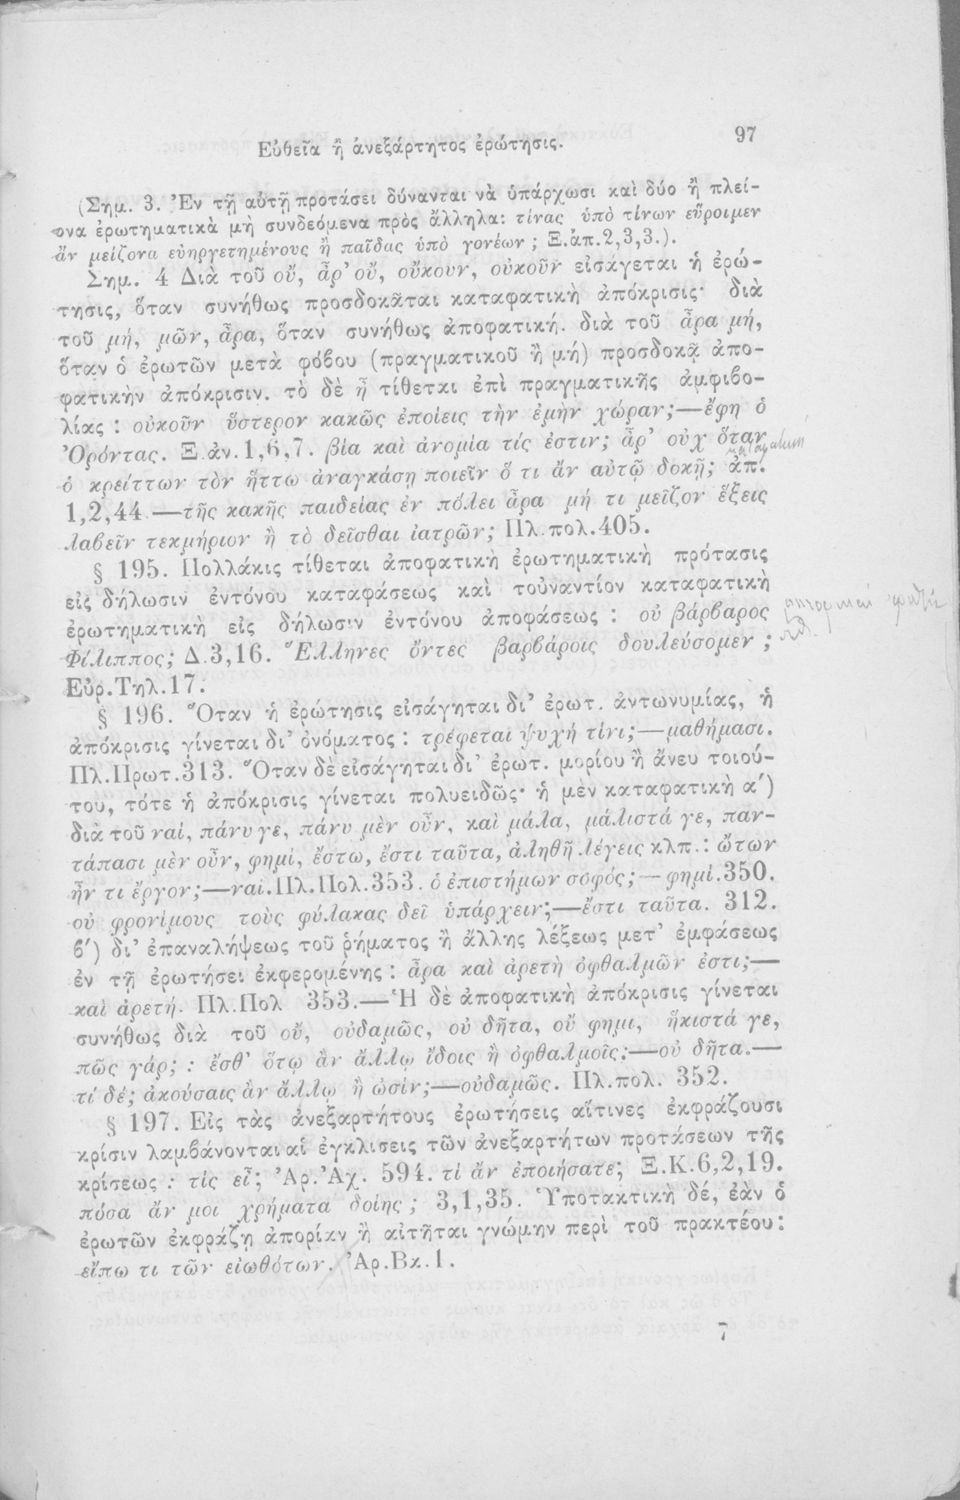 Εὐθεῖα ἢ ἀνεξάρτητος ἐρώτησις.
97
(Σημ. 3. Ἐν τῇ αὐτῇ προτάσει δύνανται νὰ ὑπάρχωσι καὶ δύο ἢ πλεί-
ονα ἐρωτηματικὰ μὴ συνδεόμενα πρὸς ἄλληλα: τίνας ὑπὸ τίνων εὕροιμεν
ἂν μείζονα εὐηργετημένους ἢ παῖδας ὑπὸ γονέων; Ξ.ἀπ.2,3,3.).
Σημ. 4 Διὰ τοῦ οὔ, ἆρ' οὔ, οὔκουν, οὐκοῦν εἰσάγεται ἡ ἐρώ-
τησις, ὅταν συνήθως προσδοκᾶται καταφατικὴ ἀπόκρισις· διὰ
τοῦ μή, μῶν, ἆρα, ὅταν συνήθως ἀποφατική. διὰ τοῦ ἆρα μή,
ὅταν ὁ ἐρωτῶν μετὰ φόβου (πραγματικοῦ ἢ μή) προσδοκᾷ ἀπο-
φατικὴν ἀπόκρισιν. τὸ δὲ ἦ τίθεται ἐπὶ πραγματικῆς ἀμφιβο-
λίας : οὐκοῦν ὕστερον κακῶς ἐποίεις τὴν ἐμὴν χώραν;—ἔφη ὁ
Ὀρόντας. Ξ.ἀν.1,6,7. βία καὶ ἀνομία τίς ἐστιν; ἆρ' οὐχ ὅταν
ὁ κρείττων τὸν ἥττω ἀναγκάσῃ ποιεῖν ὅ τι ἂν αὐτῷ δοκῇ; ἀπ.
1,2,44.—τῆς κακῆς παιδείας ἐν πόλει ἆρα μή τι μεῖζον ἕξεις
λαβεῖν τεκμήριον ἢ τὸ δεῖσθαι ἰατρῶν; Πλ.πολ.405.
§ 195. Πολλάκις τίθεται ἀποφατικὴ ἐρωτηματικὴ πρότασις
εἰς δήλωσιν ἐντόνου καταφάσεως καὶ τοὐναντίον καταφατικὴ
ἐρωτηματικὴ εἰς δήλωσιν ἐντόνου ἀποφάσεως : οὐ βάρβαρος
Φίλιππος; Δ.3,16. Ἕλληνες ὄντες βαρβάροις δουλεύσομεν ;
Εὐρ.Τηλ.17.
§ 196. Ὅταν ἡ ἐρώτησις εἰσάγηται δι' ἐρωτ. ἀντωνυμίας, ἡ
ἀπόκρισις γίνεται δι' ὀνόματος : τρέφεται ψυχή τίνι;—μαθήμασι.
Πλ.Πρωτ.313. Ὅταν δὲ εἰσάγηται δι' ἐρωτ. μορίου ἢ ἄνευ τοιού-
του, τότε ἡ ἀπόκρισις γίνεται πολυειδῶς· ἡ μὲν καταφατικὴ α')
διὰ τοῦ ναί, πάνυ γε, πάνυ μὲν οὖν, καὶ μάλα, μάλιστά γε, παν-
τάπασι μὲν οὖν, φημί, ἔστω, ἔστι ταῦτα, ἀληθῆ λέγεις κλπ.: ὤτων
ἦν τι ἔργον;—ναί.Πλ.Πολ.353. ὁ ἐπιστήμων σοφός;—φημί.350.
οὐ φρονίμους τοὺς φύλακας δεῖ ὑπάρχειν;—ἔστι ταῦτα. 312.
β') δι' ἐπαναλήψεως τοῦ ῥήματος ἢ ἄλλης λέξεως μετ' ἐμφάσεως
ἐν τῇ ἐρωτήσει ἐκφερομένης : ἆρα καὶ ἀρετὴ ὀφθαλμῶν ἐστι;—
καὶ ἀρετή. Πλ.Πολ 353.—Ἡ δὲ ἀποφατικὴ ἀπόκρισις γίνεται
συνήθως διὰ τοῦ οὔ, οὐδαμῶς, οὐ δῆτα, οὔ φημι, ἥκιστά γε,
πῶς γάρ; : ἔσθ' ὅτῳ ἂν ἄλλῳ ἴδοις ἢ ὀφθαλμοῖς;—οὐ δῆτα.—
τί δέ; ἀκούσαις ἂν ἄλλῳ ἢ ὠσίν;—οὐδαμῶς. Πλ.πολ. 352.
§ 197. Εἰς τὰς ἀνεξαρτήτους ἐρωτήσεις αἵτινες ἐκφράζουσι
κρίσιν λαμβάνονται αἱ ἐγκλίσεις τῶν ἀνεξαρτήτων προτάσεων τῆς
κρίσεως : τίς εἶ; Ἀρ.Ἀχ. 594. τί ἂν ἐποιήσατε; Ξ.Κ.6,2,19.
πόσα ἄν μοι χρήματα δοίης ; 3,1,35. Ὑποτακτικὴ δέ, ἐὰν ὁ
ἐρωτῶν ἐκφράζῃ ἀπορίαν ἢ αἰτῆται γνώμην περὶ τοῦ πρακτέου:
εἴπω τι τῶν εἰωθότων. Ἀρ.Βκ.1.
7